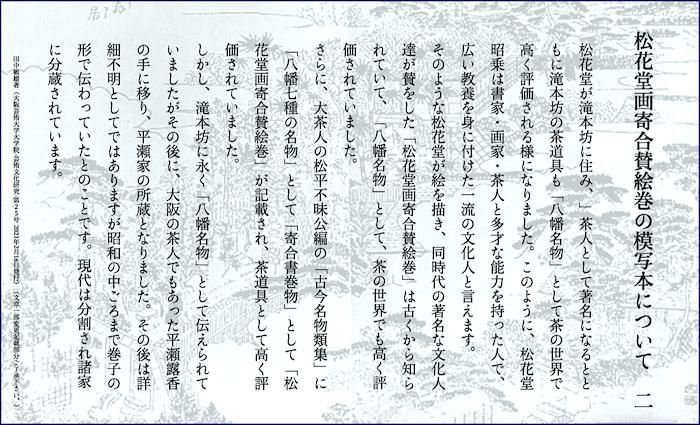 松花堂画寄合賛絵巻の模写本について 二
松花堂が滝本坊に住み、」茶人として著名になるとと
もに滝本坊の茶道具も「八幡名物」として茶の世界で
高く評価される様になりました。このように、松花堂
昭乗は書家・画家・茶人と多才な能力を持った人で、
広い教養を身に付けた一流の文化人と言えます。
そのような松花堂が絵を描き、同時代の著名な文化人
達が賛をした「松花堂画寄合賛絵巻」は古くから知ら
れていて、「八幡名物」として、茶の世界でも高く評
価されていました。
さらに、大茶人の松平不昧公編の「古今名物類集」に
「八幡七種の名物」として「寄合書巻物」として「松
花堂画寄合賛絵巻」が記載され、茶道具として高く評
価されていました。
しかし、滝本坊に永く「八幡名物」として伝えられて
いましたがその後に、大阪の茶人でもあった平瀬露香
の手に移り、平瀬家の所蔵となりました。その後は詳
細不明としてではありますが昭和の中ごろまで巻子の
形で伝わっていたとのことです。現代は分割され諸家
に分蔵されています。
田中敏雄著（大阪芸術大学大学院・芸術文化研究・第25号 2021年2月16日発行）（文章一部変更記載部分ご了承下さい。）